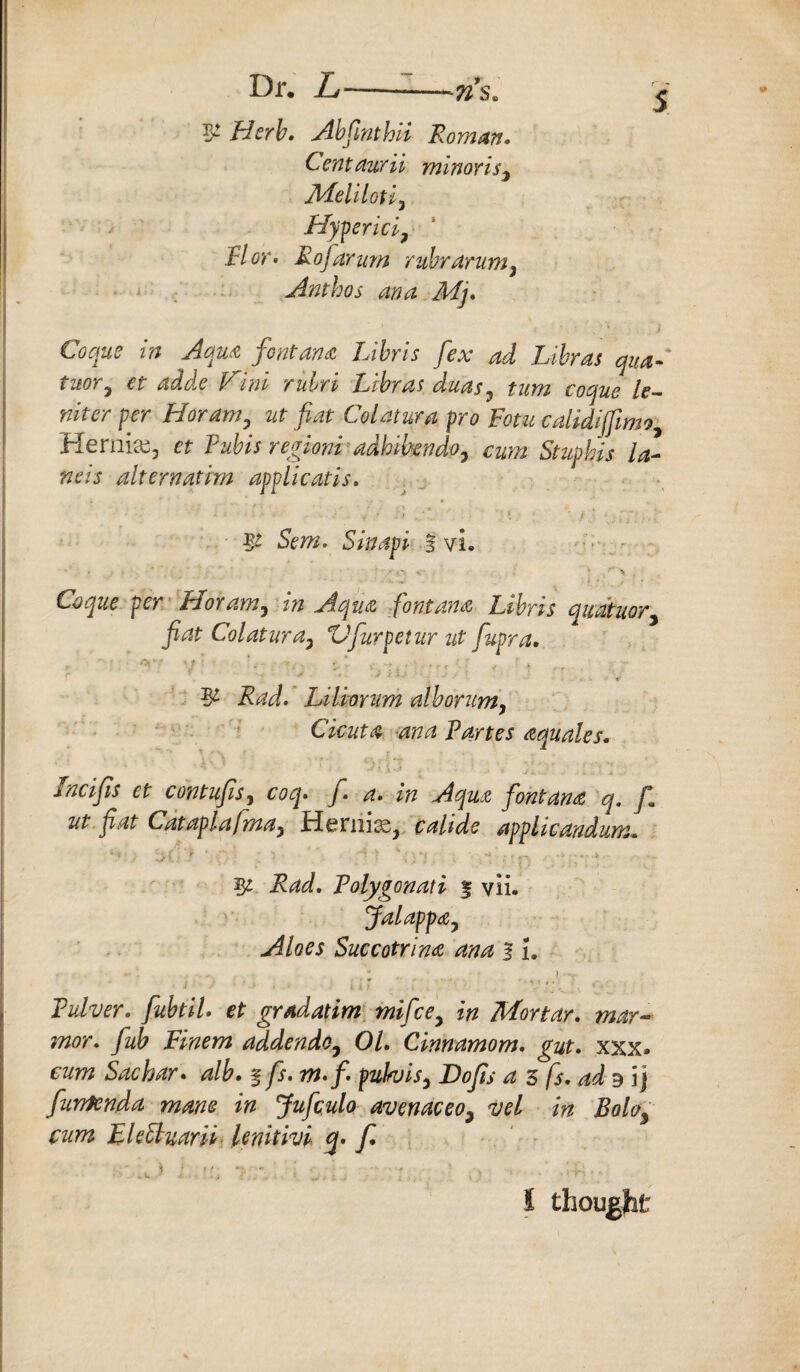 Dr. L————n's. 5
℞ Herb. Abſinthii Roman.
Centaurii minoris,
Meliloti,
Hyperici,
Flor. Roſarum rubrarum,
Anthos ana Mj.
Coque in Aquæ fontanæ Libris ſex ad Libras qua-
tuor, et adde Vini rubri Libras duas, tum coque le-
niter per Horam, ut fiat Colatura pro Fotu calidiſſimo,
Herniæ, et Pubis regioni adhibendo, cum Stuphis la-
neis alternatim applicatis.
℞ Sem. Sinapi ℥ vi.
Coque per Horam, in Aquæ fontanæ Libris quatuor,
fiat Colatura, Uſurpetur ut ſupra.
℞ Rad. Liliorum alborum,
Cicutæ ana Partes æquales.
Inciſis et contuſis, coq. ſ. a. in Aquæ fontanæ q. ſ.
ut fiat Cataplaſma, Herniæ, calide applicandum.
℞ Rad. Polygonati ℥ vii.
Jalappæ,
Aloes Succotrinæ ana ℥ i.
Pulver. ſubtil. et gradatim miſce, in Mortar. mar-
mor. ſub Finem addendo, Ol. Cinnamom. gut. xxx.
cum Sachar. alb. ℥ ſs. m. f. pulvis, Doſis a ʒ ſs. ad ℈ ij
ſumenda mane in Juſculo avenaceo, vel in Bolo,
cum Electuarii lenitivi q. ſ.
I thought